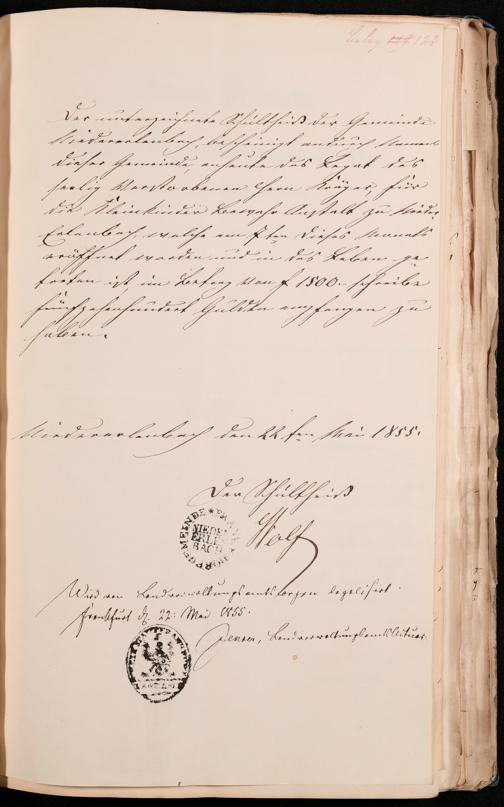 Beleg 123
Der unterzeichnete Schultheiß der Gemeinde
Niedererlenbach, bescheinigt andurch Namens
dieser Gemeinde, anheute das Legat des
seelig Verstorbenen Herrn Krüger, für
die Kleinkinder Bewahr Anstalt zu Nieder
Erlenbach, welche am 7ten dieses Monats
eröffnet worden und in das Leben ge
treten ist, im Betrag von f 1500.- schreibe
fünfzehenhundert Gulden empfangen zu
haben.
Niedererlenbach den 22ten Mai 1855.
Der Schultheiß
Wolf
NIEDER
ERLEN
BACH
DORFGEMEINDE
Wird von Landverwaltungsamtswegen legalisirt.
Frankfurt d. 22. Mai 1855.
Landverwaltungsamtsactuar.